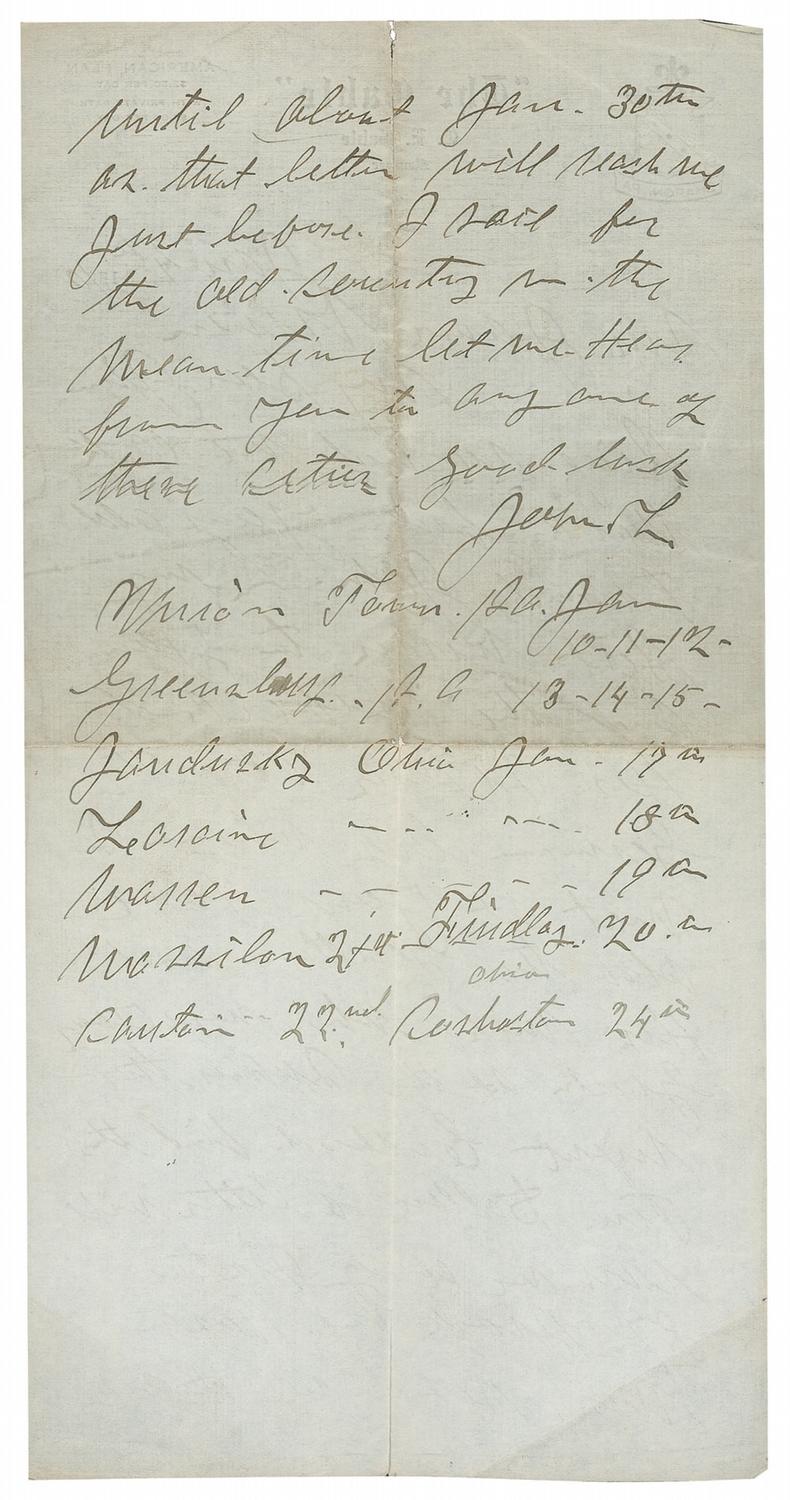 until about Jan. 30th
as that letter will reach me
Just before I sail for
the old Country in the
Mean time let me Hear
from you to any one of
these cities good luck
John L.
Union Town. pa. Jan
10-11-12-
Greensburg. p.a 13-14-15-
Sandusky Ohio Jan. 17th
18th
Warren - - - - 19th
Massilon 21st Findlay. 20th
Ohio
Canton 22nd. Coshocton 24th